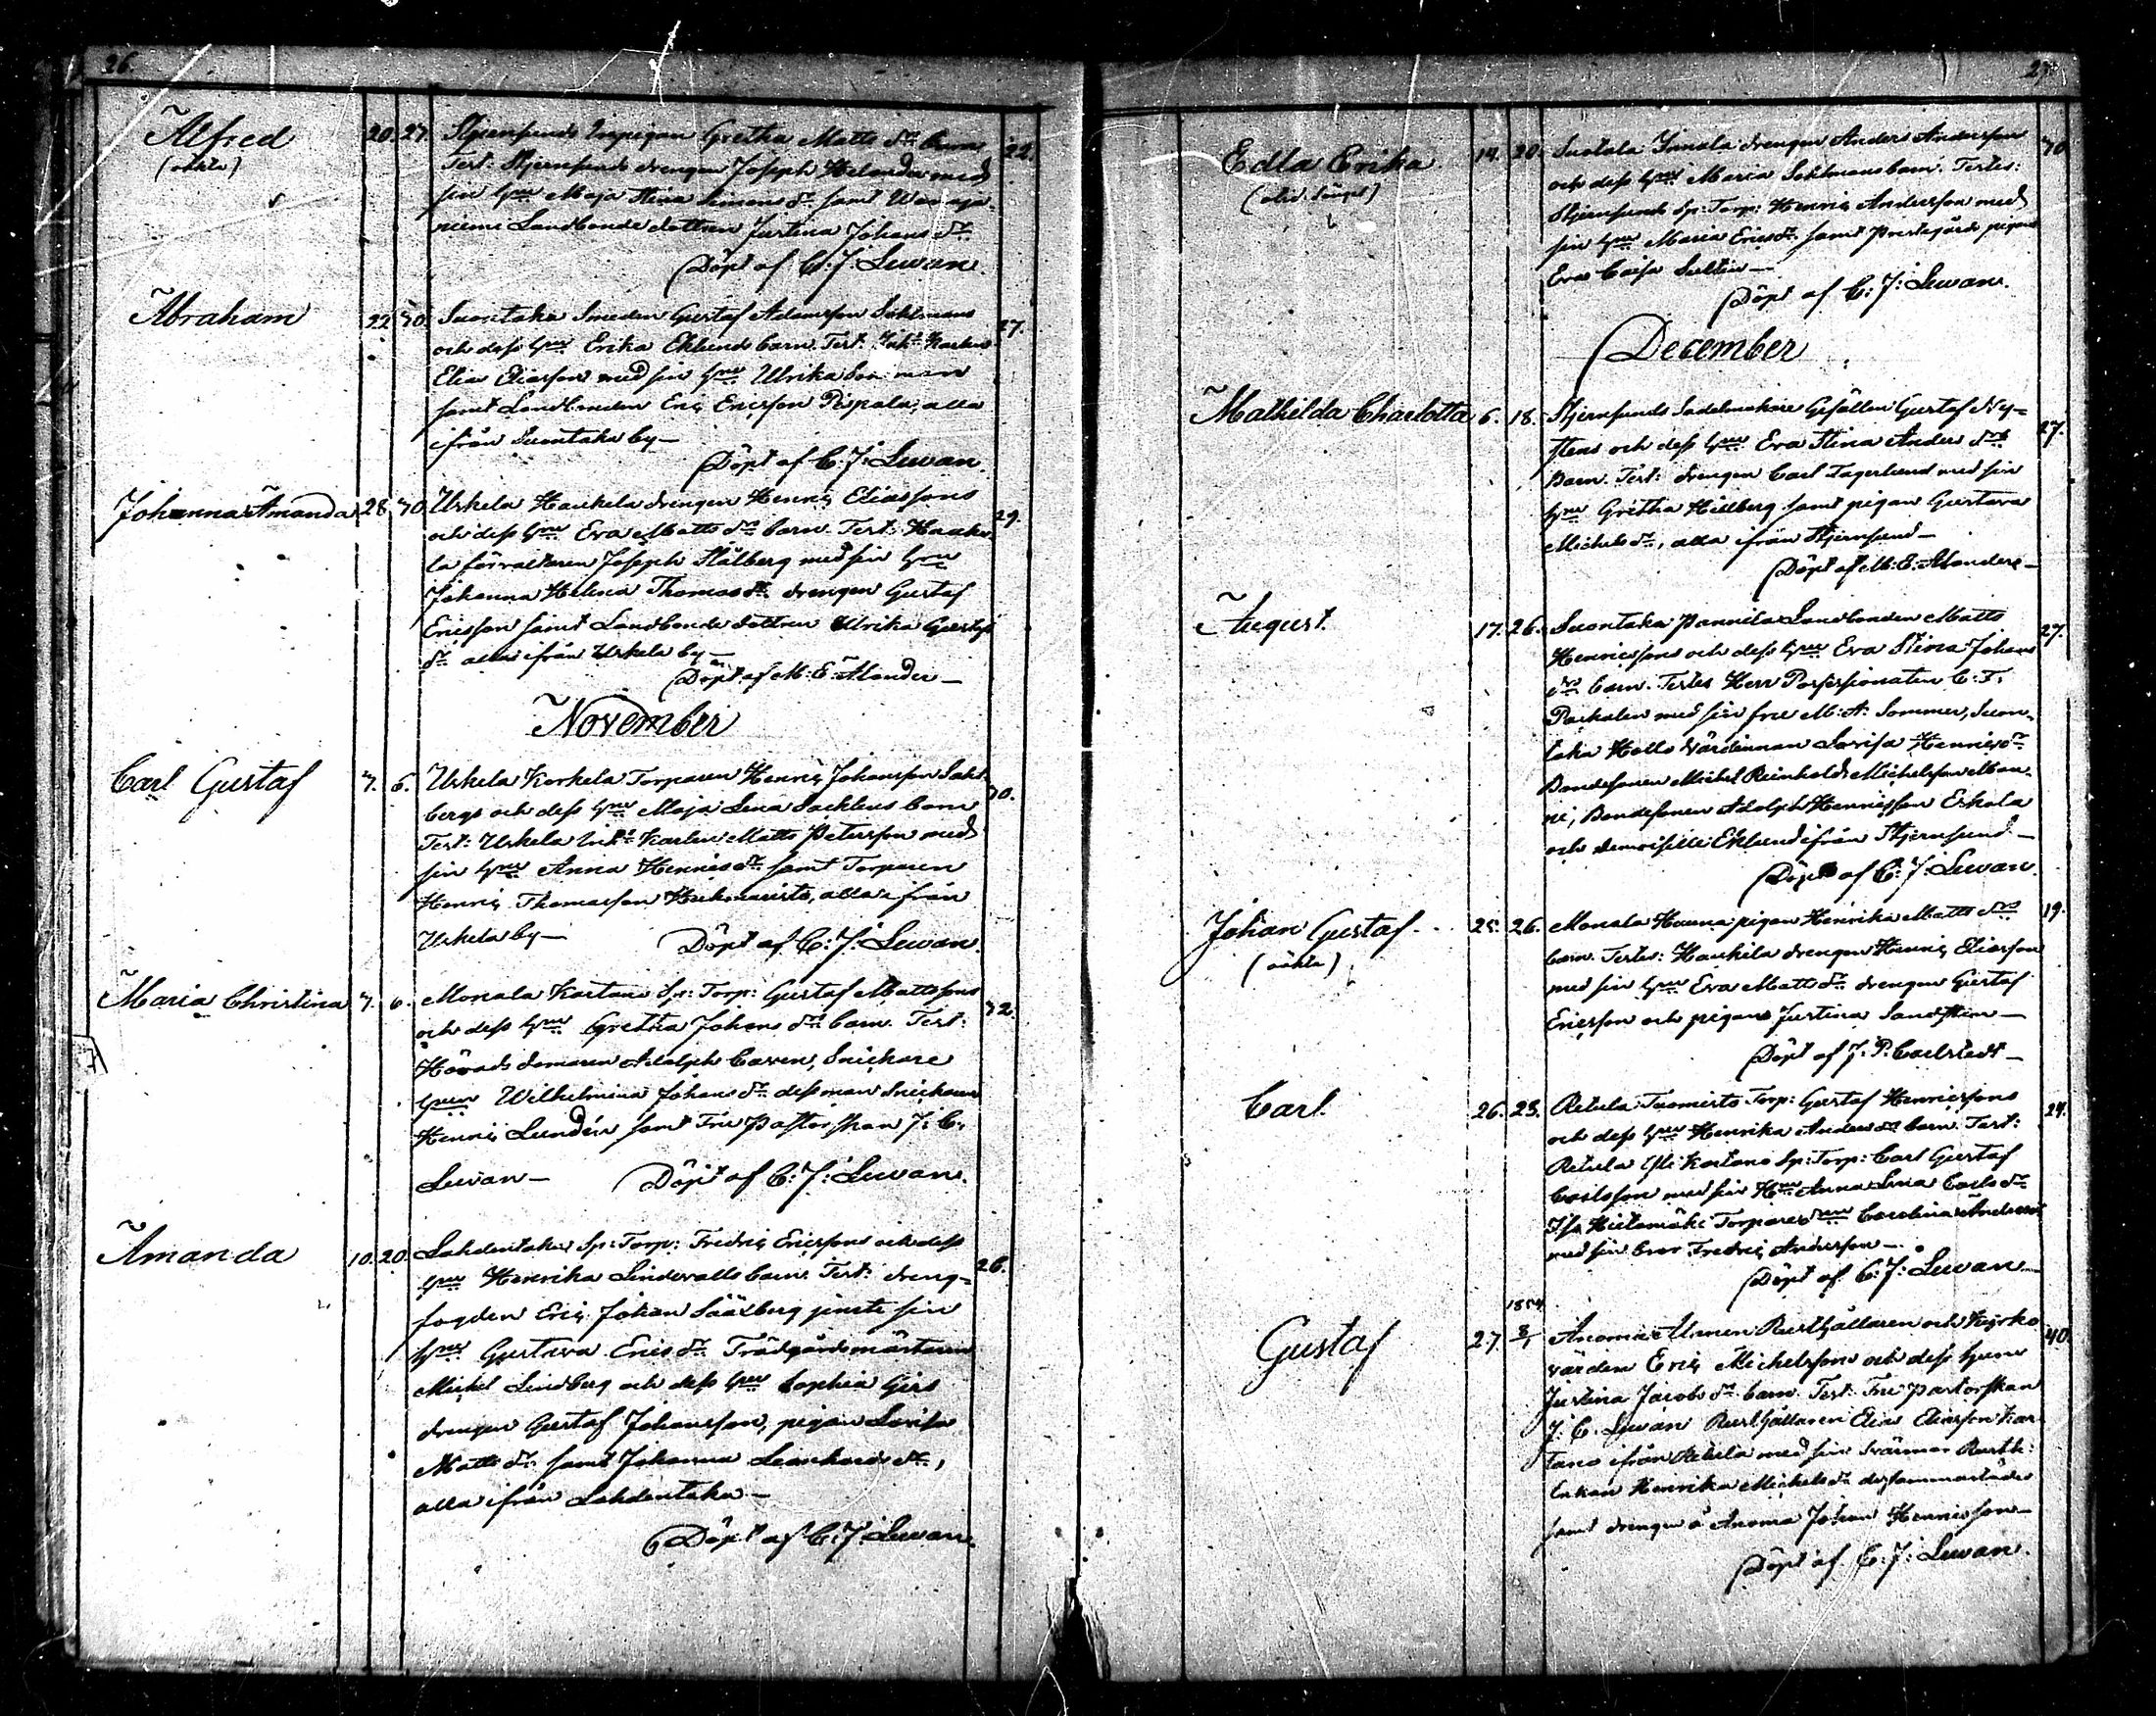 26.
Alfred 20. 27. Stjernsunds Inpigan Gretha Matts dr barn 22.
(oäkta) Test: Stjernsunds drengen Joseph Helander med
sin hru Maja Stina Simons dr samt
niemi Landbonde dottren Justina Johans dr
Döpt af C: J: Lewan.
Abraham 22 30. Suontaka Smeden Gustaf Adamsson Sahlmans 27.
och dess hru Erika Eklunds barn. Test: Inh: Karlen
Elia Eliasson med sin hru Ulrika
samt Landbonden Eric Ericsson Pispala, alla
ifrån Suontaka by—
Döpt af C: J: Lewan.
Johanna Amanda 28 30 Urkela Haukela drengen Henric Eliassons 29.
och dess hru Eva Matts drs barn. Test: Hauke-
la förvaltaren Joseph Stålberg med sin hru
Johanna Helena Thomas dr. drengen Gustaf
Ericsson samt Landbonde dottren Ulrika Gustafs
dr alla ifrån Urkela by—
Döpt af M: E: Alander—
November
Carl Gustaf 3. 6. Urkela Korkela Torparen Henric Johansson Sahl- 30.
bergs och dess hru Maja Lena Sacklens barn
Test: Urkela Inh: Karlen Matts Petersson med
sin hru Anna Henrics dr samt Torparen
Henric Thomasson alla ifrån
Urkela by— Döpt af C: J: Lewan.
Maria Christina 3. 6. Monala Kartano Sp: Torp: Gustaf Mattssons 32.
och dess hru Gretha Johans drs barn. Test:
Härads domaren Adolph Caven, Snickare
hrun Wilhelmina Johans dr dess man Snickaren
Henric Lundén samt Fru Pastorskan J: C:
Lewan— Döpt af C: J: Lewan.
Amanda 10. 20. Lahdentaka Sp: Torp: Fredric Ericssons och dess 26.
hru Henrika Lindevalls barn. Test: dreng-
fogden Eric Johan Sääxberg jemte sin
hru Gustava Erics dr Trädgårdsmästaren
Michel Lindberg och dess hru Sophia Girs
drengen Gustaf Johansson, pigan Lovisa
Matts dr samt Johanna Leonhards dr,
alla ifrån Lahdentaka—
Döpt af C: J: Lewan.
27
Edla Erika 14. 20. Suotala Innala drengen Anders Andersson 30
och dess hru Maria Sahlmans barn. Testes:
Stjernsunds Sp: Torp: Henric Andersson med
sin hru Maria Erics dr. samt Prestgårds pigan
Eva Caisa Sultin—
Döpt af C: J: Lewan.
December
Mathilda Charlotta 6. 18. Stjernsunds Sadelmakare Gesällen Gustaf Ny- 27.
stens och dess hru Eva Stina Anders drs
Barn. Test: drengen Carl Lagerlund med sin
hru Gretha Hellberg samt pigan Gustava
Michels dr, alla ifrån Stjernsund—
Döpt af M: E: Alander—
August. 17. 26. Suontaka Pannila Landbonden Matts 27.
Henricssons och dess hru Eva Stina Johans
drs barn. Testes Herr Possessionaten C: F:
Packalen med sin fru M: A: Sommer, Suon-
taka Hollo Värdinnan Lovisa Henrics dr
Bondesonen Michel Reinhold Michelsson Man-
ni, Bondesonen Adolph Henricsson Erkola
och demoiselle Eklund ifrån Stjernsund—
Döpt af C: J: Lewan.
Johan Gustaf 25. 26. Monala Hanna pigan Henrika Matts drs 19.
(oäkta) barn. Testes: Haukela drengen Henric Eliasson
med sin hru Eva Matts dr drengen Gustaf
Ericsson och pigan Justina Sandsten—
Döpt af J: P: Carlstedt—
Carl 26. 28. Retula Tuomisto Torp: Gustaf Henricssons 24.
och dess hru Henrika Anders drs barn. Test:
Retula Kartano Sp: Torp: Carl Gustaf
Carlsson med sin Hru Anna Lena Carls dr
Hietamäki Torpare Carolina Anders dr
med sin bror Fredric Andersson—
Döpt af C: J: Lewan—
1854
Gustaf 27. 8/1 Anomia Ulmen Rusthållaren och Kyrko 40.
värden Eric Michelsson och dess hru
Justina Jacobs dr barn. Test: Fru Pastorskan
J: C: Lewan Rusthållaren Elias Eliasson Kar-
tano ifrån Retula med sin Svärmor Rusth:
Enkan Henrika Michels dr dersammastädes
samt drengen å Anomia Johan Henricsson—
Döpt af C: J: Lewan.